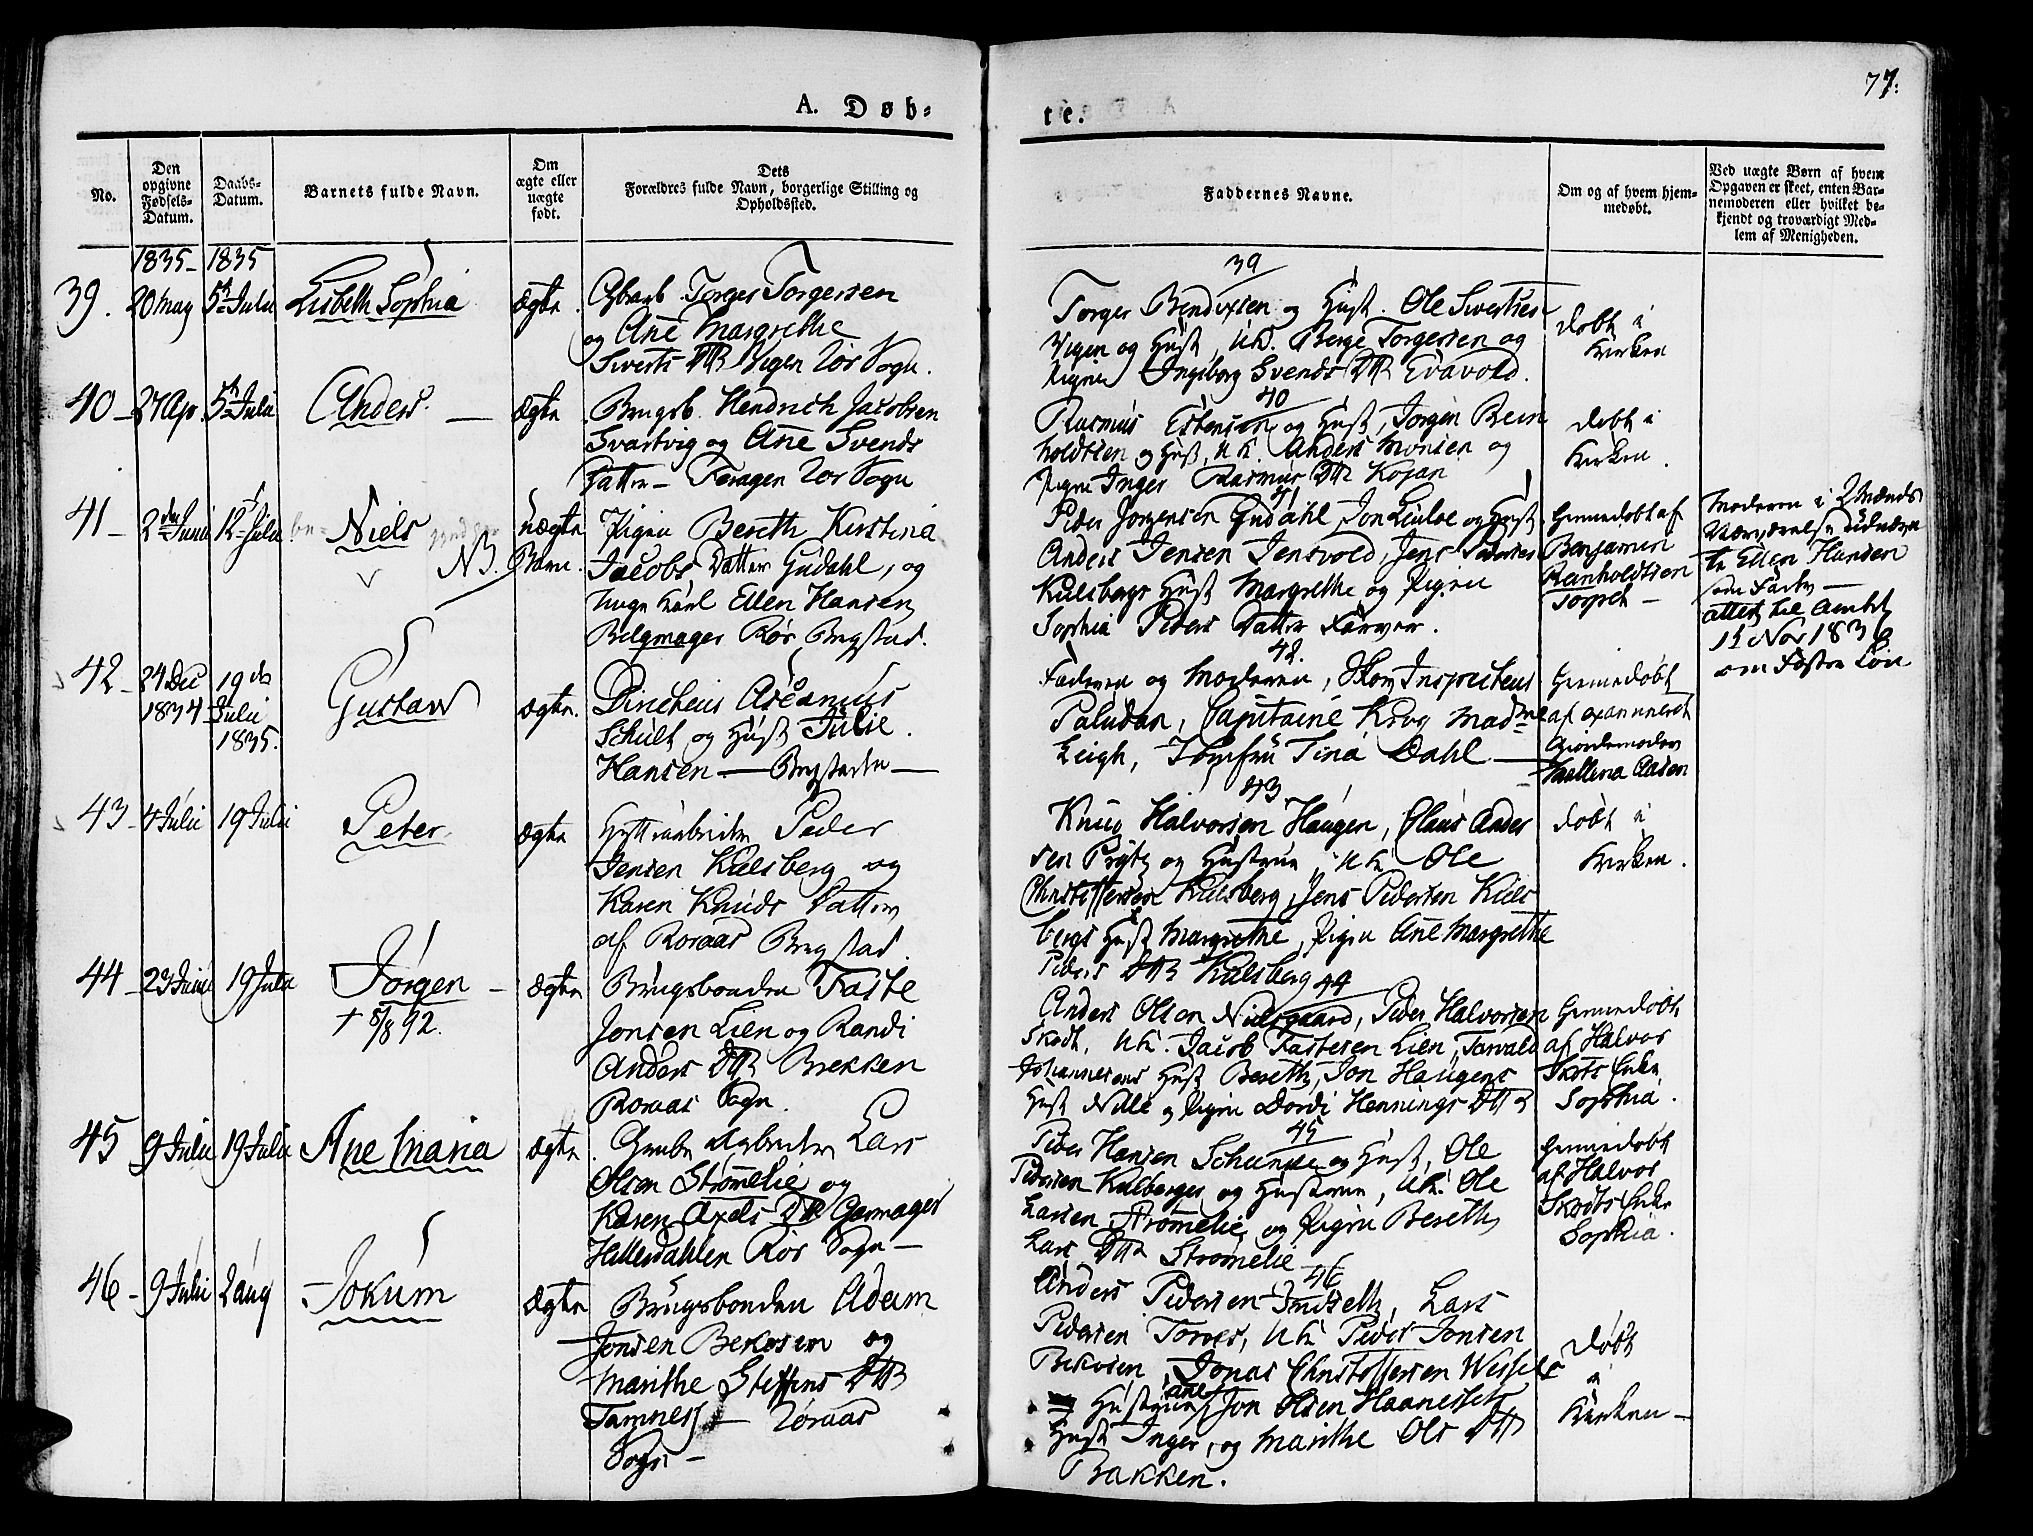 77.
A. Døb-
te.
No.
Den opgivne Fødsels-Datum.
Daabs-Datum.
Barnets fulde Navn.
Om ægte eller uægte født.
Dets
Forældres fulde Navn, borgerlige Stilling og
Opholdssted.
Faddernes Navne.
Om og af hvem hjem-
medøbt.
Ved uægte Børn af hvem
Opgaven er skeet, enten Bar-
nemoderen eller hvilket be-
kjendt og troværdigt Med-
lem af Menigheden.
1835 - 1835
39. 20 May 5te Julii Lisbeth Sophia ægte. Torger Torgersen
og Ane Margrethe
Siverts DR Vigen Rør Sogn.
39
Torger Bendixsen og Hust. Ole Sivertsen
Vigen og Hust, UK. Berge Torgersen og
Pigen Ingeborg Svends DR Evavold.
døbt i
Kirken
40 - 27 Ap. 5te Julii Anders. — ægte Brugsb. Hendrich Jacobsen
Svartvig og Ane Svends
Datter - Feragen Rør Sogn
40
Rasmus Estensen og Hust, Jørgen Rein
holdtsen og Hust, UK. Anders Monsen og
Pigen Inger Rasmus DR Kojan
døbt i
Kirken.
41 - 2den Junii 12 Julii Niels NB. uægte
Barn. Pigen Bereth Kirstina
Jacobs Datter Gjidahl, og
Unge Karl Ellen Hansen
Rør Bergstad.
41
Peder Jørgensen Jon og Hust
Anders Jensen Jensvold, Jens Pedersen
Kulsbergs Hust Margrethe og Pigen
Sophia Peders Datter Farver.
Hiemedøbt af
Benjamin
Reinholdtsen
Moderen i 2 Mænds
Nærværelse
Ellen Hansen
som Fader —
attest til Amtet
11 Nov 1836
om
42 - 24 Dec
1834 19de
Julii
1835. Gustav ægte. Directeur Ascanius
Schult og Hust Julie
Hansen — Bergstaden —
42.
Faderen og Moderen, Inspecteur
Paludan, Capitaine Krog Madme
Leigh, Jomfru Tina Dahl —
Hiemedøbt
af examineret
Giordemoder
Aasen
43 - 4 Julii 19 Julii Peter ægte Hyttearbeider Peder
Jensen Kulsberg og
Karen Knuds Datter
af Roraas Bergstad.
43
Knud Halvorsen Haugen, Claus Ander
sen Prytz og Hustrue, UK Ole
Christoffersen Kulsberg, Jens Pedersen Kuls
bergs Hust Margrethe, Pigen Ane Margrethe
Peders DR Kulsberg
døbt i
Kirken.
44 - 23 Junii 19 Julii Jørgen —
† 5/8 92. ægte Brugsbonden Faste
Jonsen Lien og Randi
Anders DR Brekken
Roraas Sogn.
44
Anders Olsen Nilsgaard, Peder Halvorsen
Skott, UK. Jacob Fastesen Lien, Torvald
Johannesens Hust Bereth, Jon Haugens
Hust Nille og Pigen Dordi Hennings DR
Hiemedøbt
af Halvor
Skots Enke
Sophia.
45 9 Julii 19 Julii Ane Maria ægte. Grube Arbeider Lars
Olsen Strømelie og
Karen Axels DR
Hitterdahlen Rør Sogn —
45
Peder Hansen og Hust, Ole
Pedersen Kulberger og Hustrue, UK. Ole
Larsen Strømelie og Pigen Bereth
Lars DR Strømelie
Hiemedøbt
af Halvor
Skots Enke
Sophia.
46 - 9 Julii 2 Aug - Jokum ægte Brugsbonden Adam
Jonsen Bekosen og
Marithe Steffens DR
Tamnes — Røraas
Sogn —
46
Anders Pedersen Lars
Pedersen Torres, UK Peder Jonsen
Bekosen, Jonas Christoffersen Wessels
Hustrue Ane, Jon Olsen
Hust Inger, og Marithe Ols DR
Bakken.
Døbt
i
Kirken —